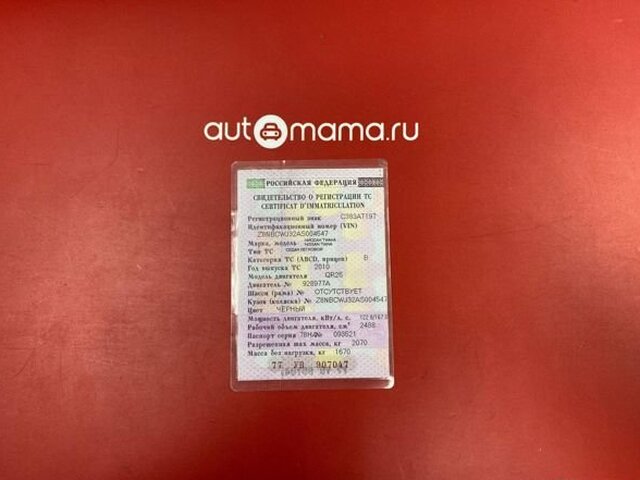 automama.ru
РОССИЙСКАЯ ФЕДЕРАЦИЯ
СВИДЕТЕЛЬСТВО О РЕГИСТРАЦИИ ТС
CERTIFICAT D'IMMATRICULATION
Регистрационный знак С383АТ197
Идентификационный номер (VIN)
Z8NBCWJ32AS004547
Марка, модель НИССАН ТИАНА
NISSAN TIANA
Тип ТС СЕДАН ЛЕГКОВОЙ
Категория ТС (ABCD, прицеп) B
Год выпуска ТС 2010
Модель двигателя QR25
Двигатель № 928977A
Шасси (рама) № ОТСУТСТВУЕТ
Кузов (коляска) № Z8NBCWJ32AS004547
Цвет ЧЕРНЫЙ
Мощность двигателя, кВт/л. с.
Рабочий объем двигателя, см³ 2488
Паспорт серия 78 № 093621
Разрешенная max масса, кг 2070
Масса без нагрузки, кг 1670
77 УВ 907047